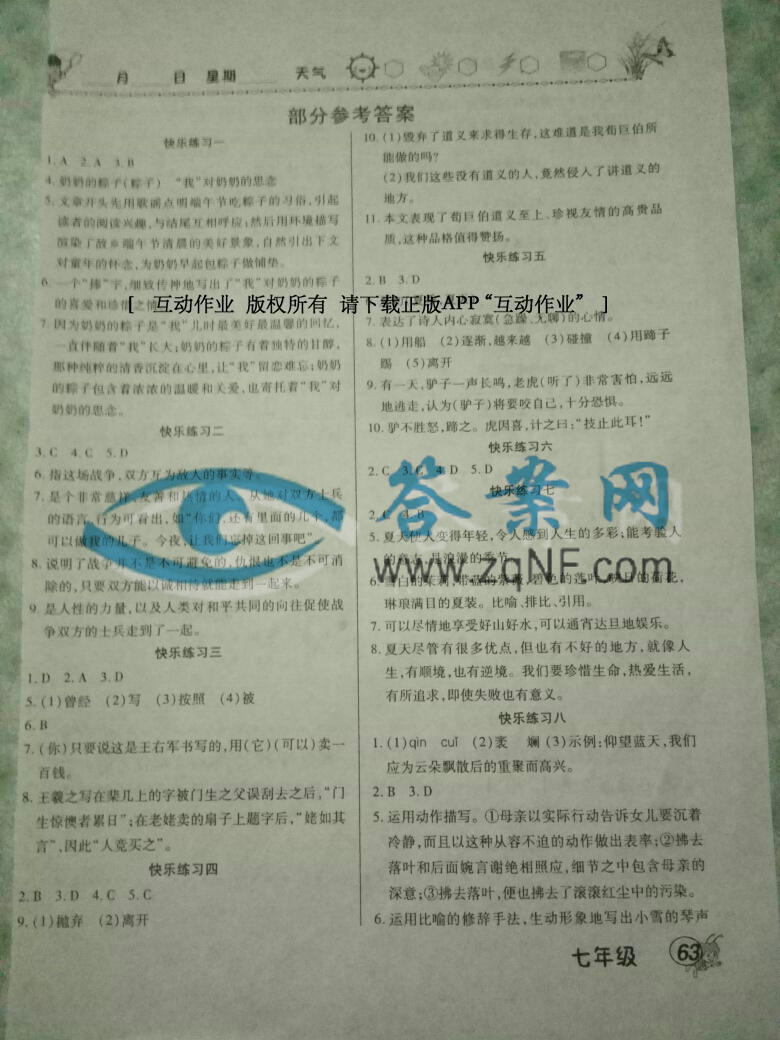 月 日 星期 天气
部分参考答案
快乐练习一
1. A 2. A 3. B
4. 奶奶的粽子(粽子) “我”对奶奶的思念
5. 文章开头先用歌谣点明端午节吃粽子的习俗,引起
读者的阅读兴趣,与结尾互相呼应;然后用环境描写
渲染了故乡端午节清晨的美好景象,自然引出下文
对童年的怀念,为奶奶早起包粽子做铺垫。
6. 一个“捧”字,细致传神地写出了“我”对奶奶的粽子
的喜爱和珍惜之情
7. 因为奶奶的粽子是“我”儿时最美好最温馨的回忆,
一直伴随着“我”长大;奶奶的粽子有着独特的甘醇,
那种纯粹的清香沉淀在心里,让“我”留恋难忘;奶奶
的粽子包含着浓浓的温暖和关爱,也寄托着“我”对
奶奶的思念。
快乐练习二
3. C 4. C 5. D
6. 指这场战争,双方互为敌人的事实等。
7. 是个非常慈祥、友善和热情的人。从她对双方士兵
的语言、行为可看出,如“你们,还有里面的几个,都
可以做我的儿子。今夜,让我们忘掉这回事吧”。
8. 说明了战争并不是不可避免的,仇恨也不是不可消
除的,只要双方能以诚相待就能走到一起来。
9. 是人性的力量,以及人类对和平共同的向往促使战
争双方的士兵走到了一起。
快乐练习三
1. D 2. A 3. D
5. (1)曾经 (2)写 (3)按照 (4)被
6. B
7. (你)只要说这是王右军书写的,用(它)(可以)卖一
百钱。
8. 王羲之写在棐几上的字被门生之父误刮去之后,“门
生惊懊者累日”;在老姥卖的扇子上题字后,“姥如其
言”,因此“人竞买之”。
快乐练习四
2. B 3. D 4. C 5. C
9. (1)抛弃 (2)离开
10. (1)毁弃了道义来求得生存,这难道是我荀巨伯所
能做的吗?
(2)我们这些没有道义的人,竟然侵入了讲道义的
地方。
11. 本文表现了荀巨伯道义至上、珍视友情的高贵品
质,这种品格值得赞扬。
快乐练习五
2. B 3. D
[ 互动作业 版权所有 请下载正版APP“互动作业” ]
7. 表达了诗人内心寂寞(急躁、无聊)的心情。
8. (1)用船 (2)逐渐,越来越 (3)碰撞 (4)用蹄子
踢 (5)离开
9. 有一天,驴子一声长鸣,老虎(听了)非常害怕,远远
地逃走,认为(驴子)将要咬自己,十分恐惧。
10. 驴不胜怒,蹄之。虎因喜,计之曰:“技止此耳!”
快乐练习六
2. C 3. C 4. D 5. D
快乐练习七
2. C 3. B
5. 夏天使人变得年轻,令人感到人生的多彩;能考验人
的意志,是浪漫的季节。
6. 雪白的茉莉,带蓝的紫薇,碧色的莲叶,映日的荷花,
琳琅满目的夏装。比喻、排比、引用。
7. 可以尽情地享受好山好水,可以通宵达旦地娱乐。
8. 夏天尽管有很多优点,但也有不好的地方,就像人
生,有顺境,也有逆境。我们要珍惜生命,热爱生活,
有所追求,即使失败也有意义。
快乐练习八
1. (1)qìn cuǐ (2)袤 斓 (3)示例:仰望蓝天,我们
应为云朵飘散后的重聚而高兴。
2. B 3. D
5. 运用动作描写。①母亲以实际行动告诉女儿要沉着
冷静,而且以这种从容不迫的动作做出表率;②拂去
落叶和后面婉言谢绝相照应,细节之中包含母亲的
深意;③拂去落叶,便也拂去了滚滚红尘中的污染。
6. 运用比喻的修辞手法,生动形象地写出小雪的琴声
七年级 63
答案网
www.zqNF.com